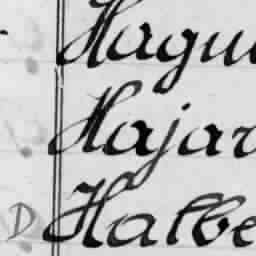 Hague
Hajar
D Halbe